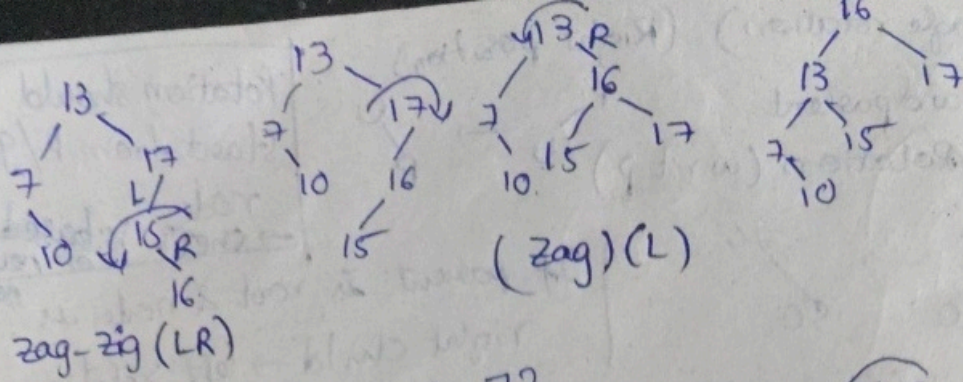 13
7 17
L
10 15 R
16
zag-zig (LR)
13
7 17
10 16
15
13 R
7 16
10 15 17
(zag) (L)
16
13 17
7 15
10